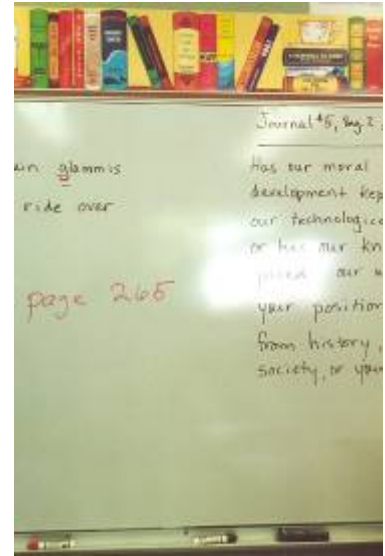 glammis
ride over
page 265
Journal #5, Sug 2
Has our moral
development kep
our technologica
or has our kn
our w
your position
from history,
society, or you